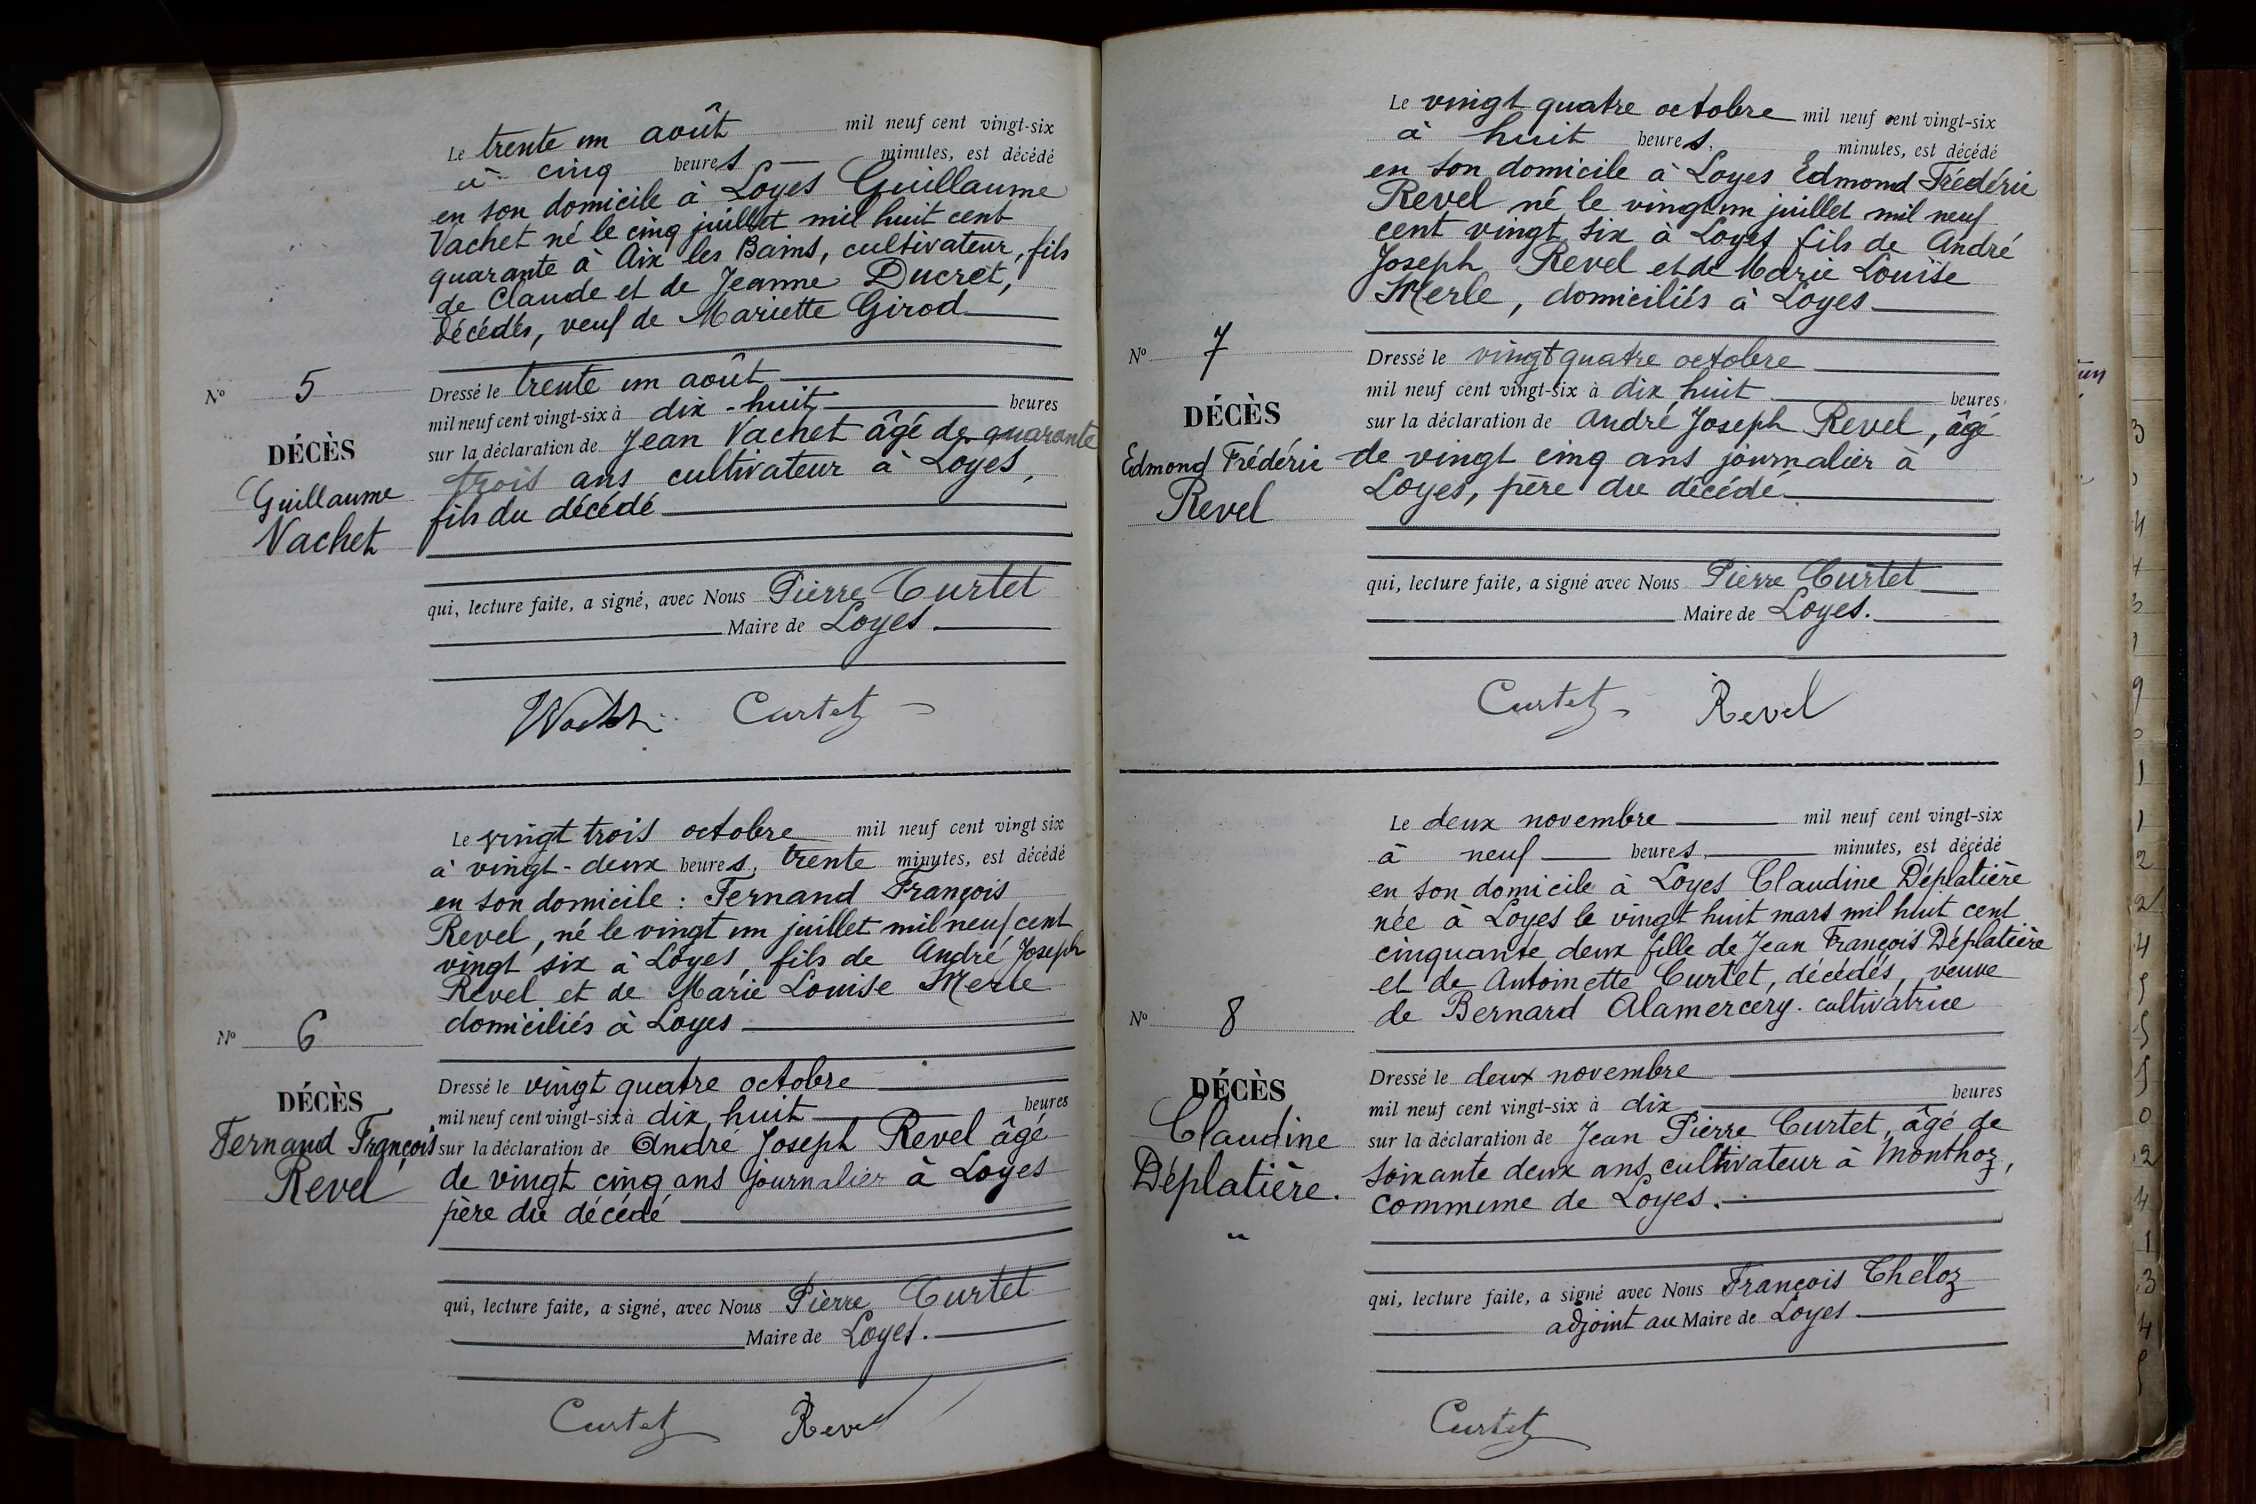 Le trente un août mil neuf cent vingt-six
à cinq heures — minutes, est décédé
en son domicile à Loyes Guillaume
Vachet né le cinq juillet mil huit cent
quarante à Aix les Bains, cultivateur, fils
de Claude et de Jeanne Ducret,
décédés, veuf de Mariette Girod
Nº 5
DÉCÈS
Guillaume
Vachet
Dressé le trente un août
mil neuf cent vingt-six à dix-huit heures
sur la déclaration de Jean Vachet âgé de quarante
trois ans cultivateur à Loyes,
fils du décédé
qui, lecture faite, a signé, avec Nous Pierre Curtet
Maire de Loyes.
Curtet
Le vingt trois octobre mil neuf cent vingt six
à vingt-deux heures, trente minutes, est décédé
en son domicile : Fernand François
Revel, né le vingt un juillet mil neuf cent
vingt six à Loyes, fils de André Joseph
Revel et de Marie Louise Merle
domiciliés à Loyes
Nº 6
DÉCÈS
Fernand François
Revel
Dressé le vingt quatre octobre
mil neuf cent vingt-six à dix huit heures
sur la déclaration de André Joseph Revel âgé
de vingt cinq ans journalier à Loyes
père du décédé
qui, lecture faite, a signé, avec Nous Pierre Curtet
Maire de Loyes.
Curtet Revel
Le vingt quatre octobre mil neuf cent vingt-six
à huit heures, minutes, est décédé
en son domicile à Loyes Edmond Frédéric
Revel né le vingt un juillet mil neuf
cent vingt six à Loyes fils de André
Joseph Revel et de Marie Louise
Merle, domiciliés à Loyes
Nº 7
DÉCÈS
Edmond Frédéric
Revel
Dressé le vingt quatre octobre
mil neuf cent vingt-six à dix huit heures
sur la déclaration de André Joseph Revel, âgé
de vingt cinq ans journalier à
Loyes, père du décédé
qui, lecture faite, a signé avec Nous Pierre Curtet
Maire de Loyes.
Curtet Revel
Le deux novembre mil neuf cent vingt-six
à neuf heures, minutes, est décédé
en son domicile à Loyes Claudine Déplatière
née à Loyes le vingt huit mars mil huit cent
cinquante deux fille de Jean François Déplatière
et de Antoinette Curtet, décédés, veuve
de Bernard Alamercery. cultivatrice
Nº 8
DÉCÈS
Claudine
Déplatière.
Dressé le deux novembre
mil neuf cent vingt-six à dix heures
sur la déclaration de Jean Pierre Curtet, âgé de
soixante deux ans, cultivateur à Monthoz,
commune de Loyes.
qui, lecture faite, a signé avec Nous François Théloz
adjoint au Maire de Loyes
Curtet